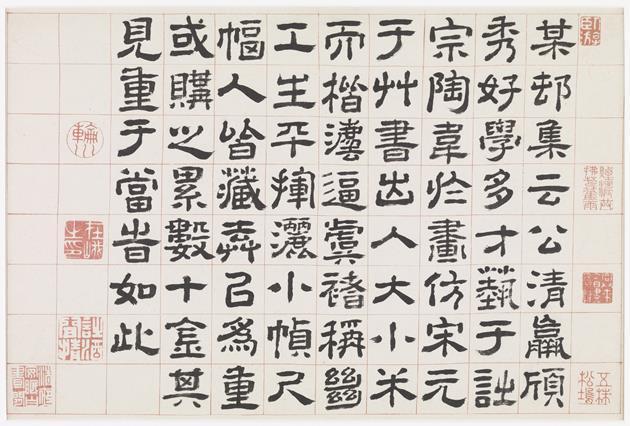 某邨集云公清羸頎
秀好學多才蓺于詩
宗陶韋於畫仿宋元
于艸書出入大小米
而楷灋逼虞褚稱𢇍
工生平揮灑小幀尺
幅人皆藏弆㠯爲重
或購之累數十金其
見重于當旹如此